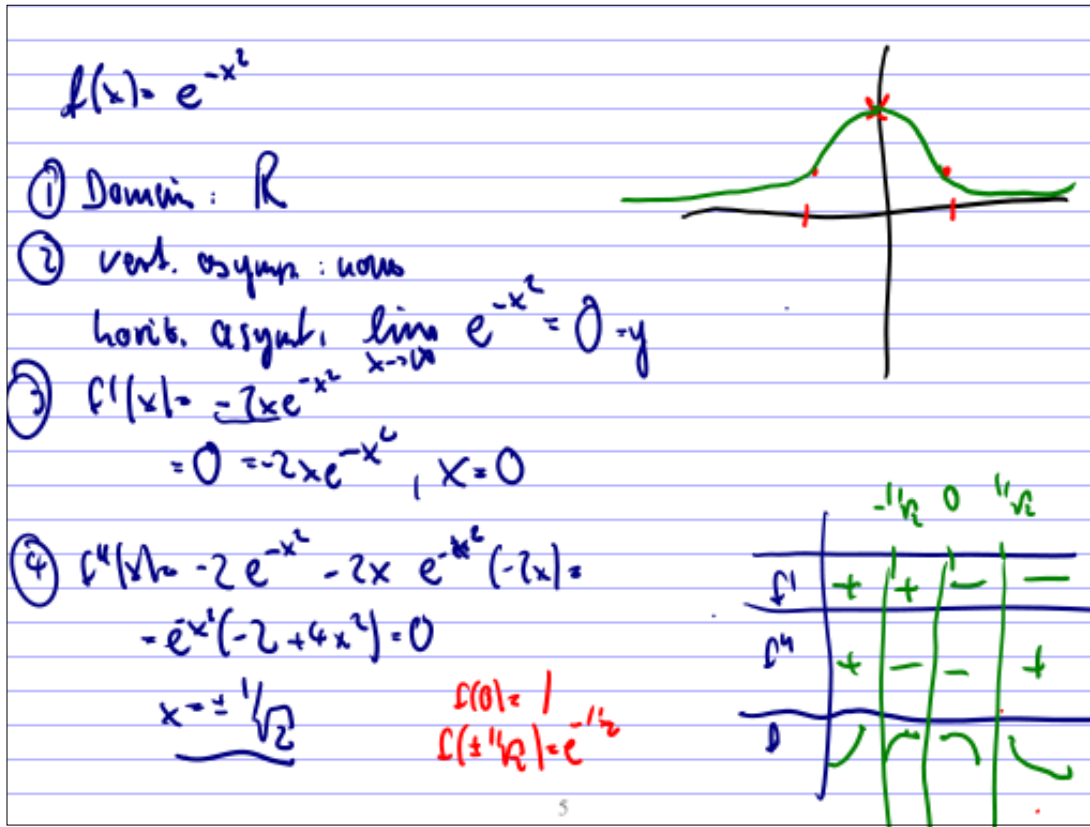 f(x)= e^{-x^2}
① Domain : ℝ
② vert. asymp : none
horiz. asympt. lim_{x→∞} e^{-x^2} = 0 = y
③ f'(x)= -2xe^{-x^2}
= 0 = -2xe^{-x^2}, x=0
④ f''(x)= -2e^{-x^2} - 2x e^{-x^2} (-2x) =
= e^{-x^2}(-2+4x^2) = 0
x = ± 1/√2
f(0)= 1
f(±1/√2)=e^{-1/2}
-1/√2 0 1/√2
f' + + - -
f'' + - - +
5